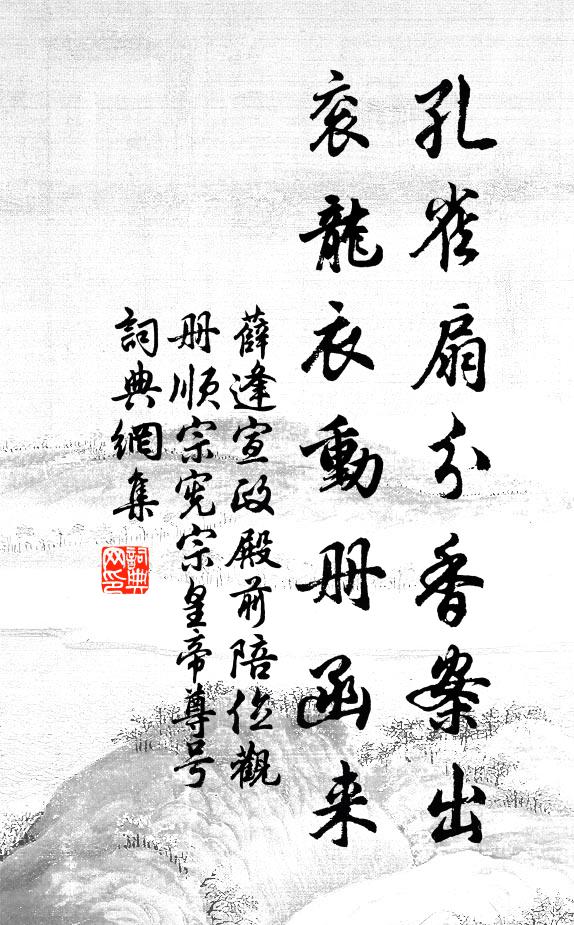 孔雀扇分香案出
衮龍衣動册函来
薛逢宣政殿前陪位觀
册順宗宪宗皇帝尊号
詞典網集
詞典网印